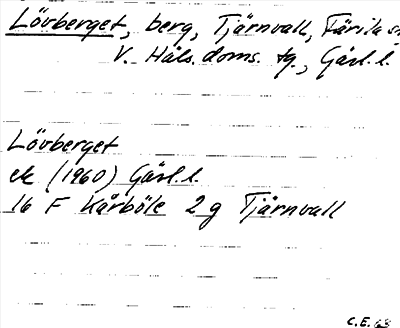 Lövberget, berg, Tjärnvall, Färila sn
V. Häls. doms. tg., Gävl. l.
Lövberget
ek (1960) Gävl. l.
16 F Kårböle 2 g Tjärnvall
C.E. 63